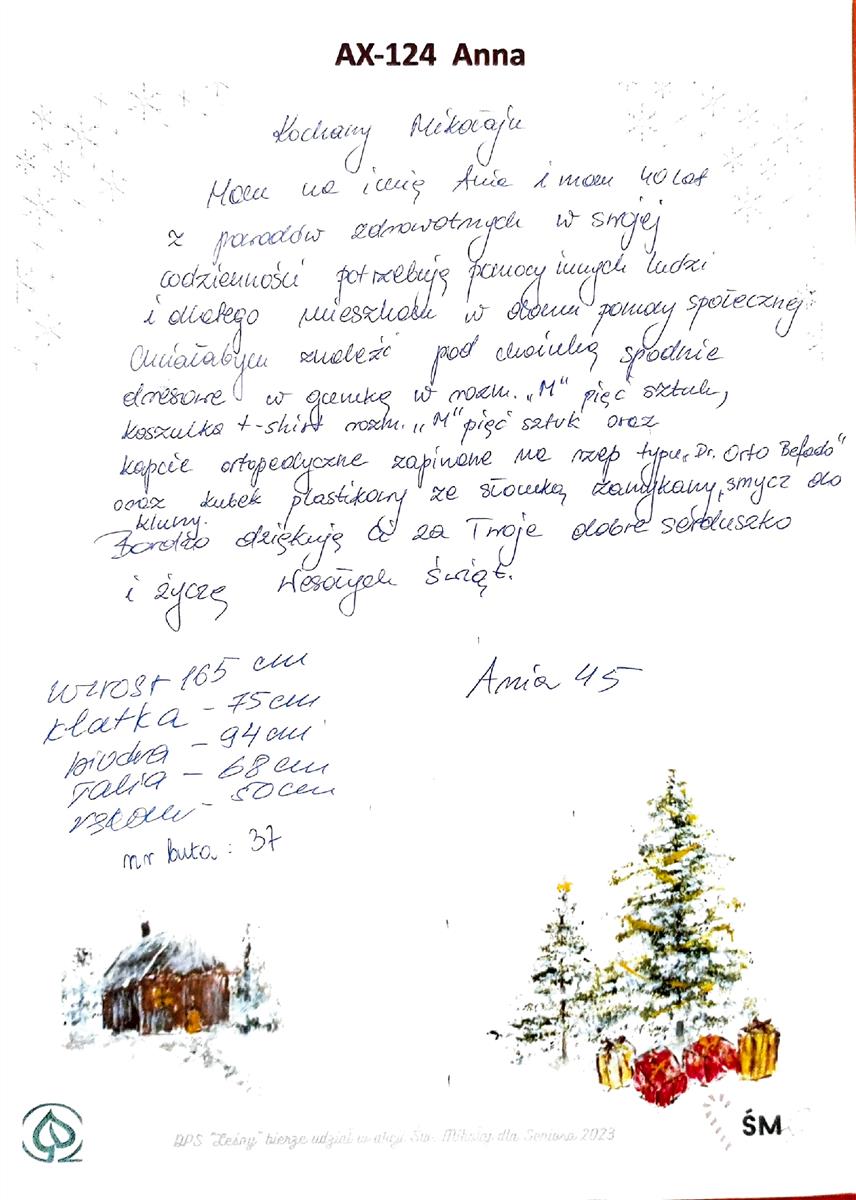 AX-124 Anna
Kochany Mikołaju
Mam na imię Ania i mam 40 lat
z powodów zdrowotnych w swojej
codzienności potrzebuję pomocy innych ludzi
i dlatego mieszkam w domu pomocy społecznej.
Chciałabym znaleźć pod choinką spodnie
dresowe w gumkę w rozm. „M" pięć sztuk,
koszulka t-shirt rozm. „M" pięć sztuk oraz
kapcie ortopedyczne zapinane na rzep typu „Dr. Orto Befado"
oraz kubek plastikowy ze słomką zamykany, smycz do
kluczy.
Bardzo dziękuję Ci za Twoje dobre serduszko
i życzę Wesołych Świąt.
wzrost 165 cm
klatka - 75 cm
biodra - 94 cm
Talia - 68 cm
- 50 cm
nr buta : 37
Ania 45
DPS "Leśny" bierze udział w akcji Św. Mikołaj dla Seniora 2023
ŚM